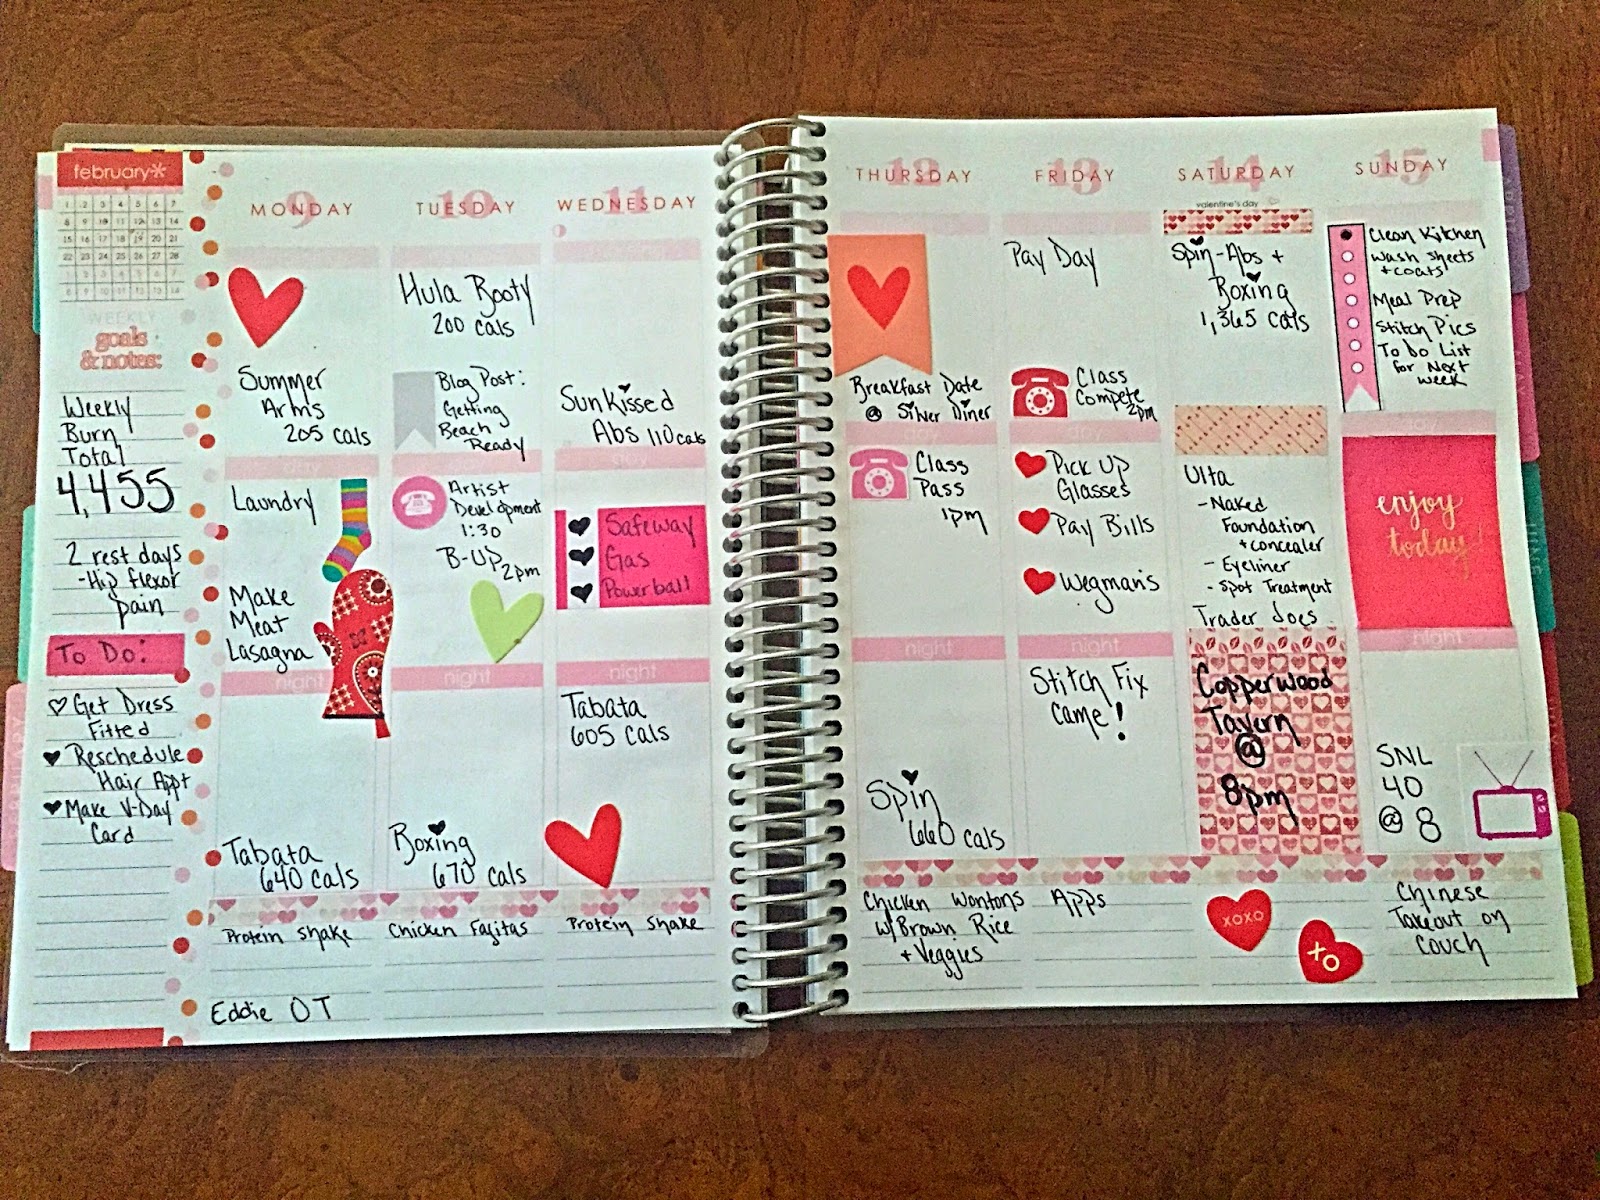 february*
1 2 3 4 5 6 7
8 9 10 11 12 13 14
15 16 17 18 19 20 21
22 23 24 25 26 27 28
WEEKLY
goals
& notes:
Weekly
Burn
Total
4,455
2 rest days
-Hip flexor
pain
To Do:
Get Dress
Fitted
Reschedule
Hair Appt
Make V-Day
Card
9
MONDAY
Summer
Arms
205 cals
day
Laundry
Make
Meat
Lasagna
night
Tabata
640 cals
Protein Shake
Eddie OT
10
TUESDAY
Hula Booty
200 cals
Blog Post:
Getting
Beach
Ready
Artist
Development
1:30
B-Up
2pm
night
Boxing
670 cals
Chicken Fajitas
11
WEDNESDAY
Sunkissed
Abs 110 cals
day
Safeway
Gas
Powerball
night
Tabata
605 cals
Protein Shake
12
THURSDAY
Breakfast Date
@ Silver Diner
day
Class
Pass
1pm
night
Spin
660 cals
Chicken Wontons
w/ Brown Rice
+ Veggies
13
FRIDAY
Pay Day
Class
Compete
2pm
day
Pick Up
Glasses
Pay Bills
Wegman's
night
Stitch Fix
came!
Apps
14
SATURDAY
valentine's day
Spin-Abs +
Boxing
1,365 cals
Ulta
-Naked
Foundation
+concealer
- Eyeliner
- Spot Treatment
Trader Joes
Copperwood
Tavern
@
8pm
XOXO
XO
15
SUNDAY
Clean Kitchen
Wash Sheets
+ coats
Meal Prep
Stitch Pics
To Do List
for Next
week
day
enjoy
today!
night
SNL
40
@ 8
Chinese
Takeout on
Couch